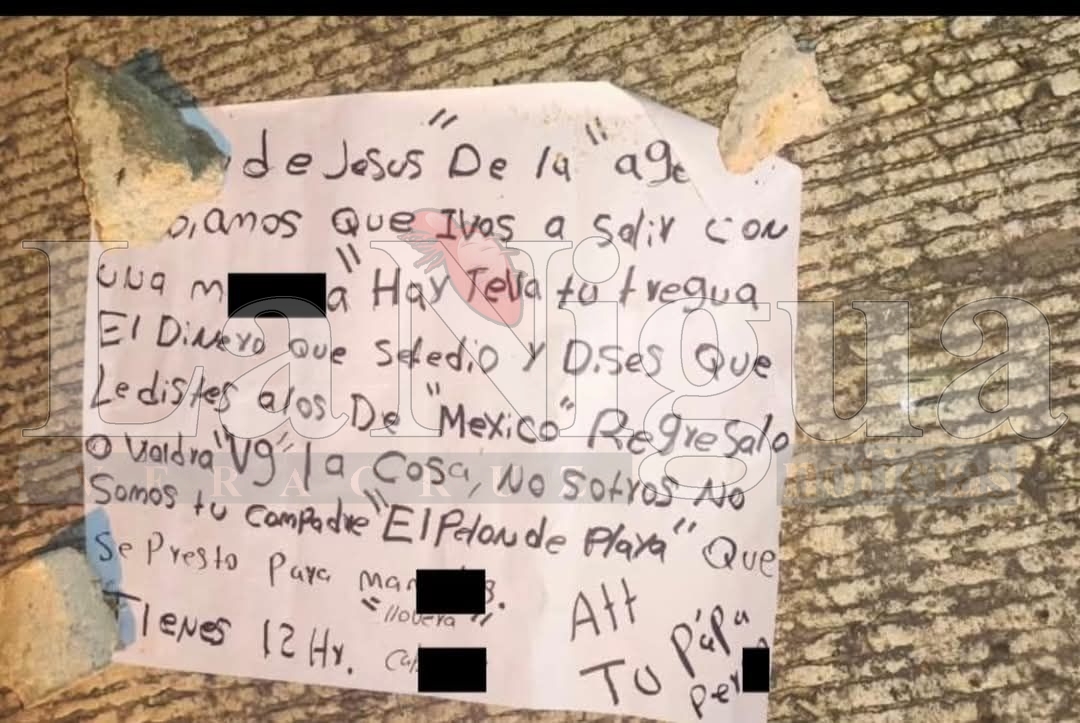 de Jesus "De la "age
que Ivas a salir con
una "Hay Teva tu tregua
El Dinero que Seledio y Dises Que
Ledistes alos De "Mexico" Regresalo
o Valdra "Vg" la Cosa, No Sotros No
Somos tu Compadre "El Pelon de Playa" Que
Se Presto Para
"llovera"
Tienes 12 Hr.
Att
Tu Pápa
LaNigua
VERACRUZ